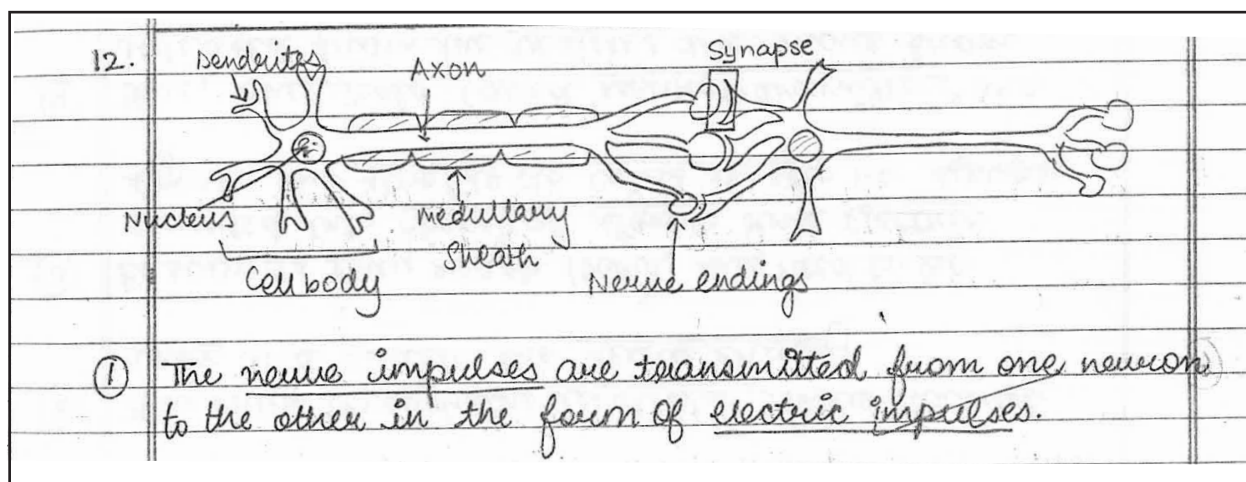 12.
Dendrites
Axon
Synapse
Nucleus
Medullary
Sheath
Cell body
Nerve endings
① The nerve impulses are transmitted from one neuron
to the other in the form of electric impulses.